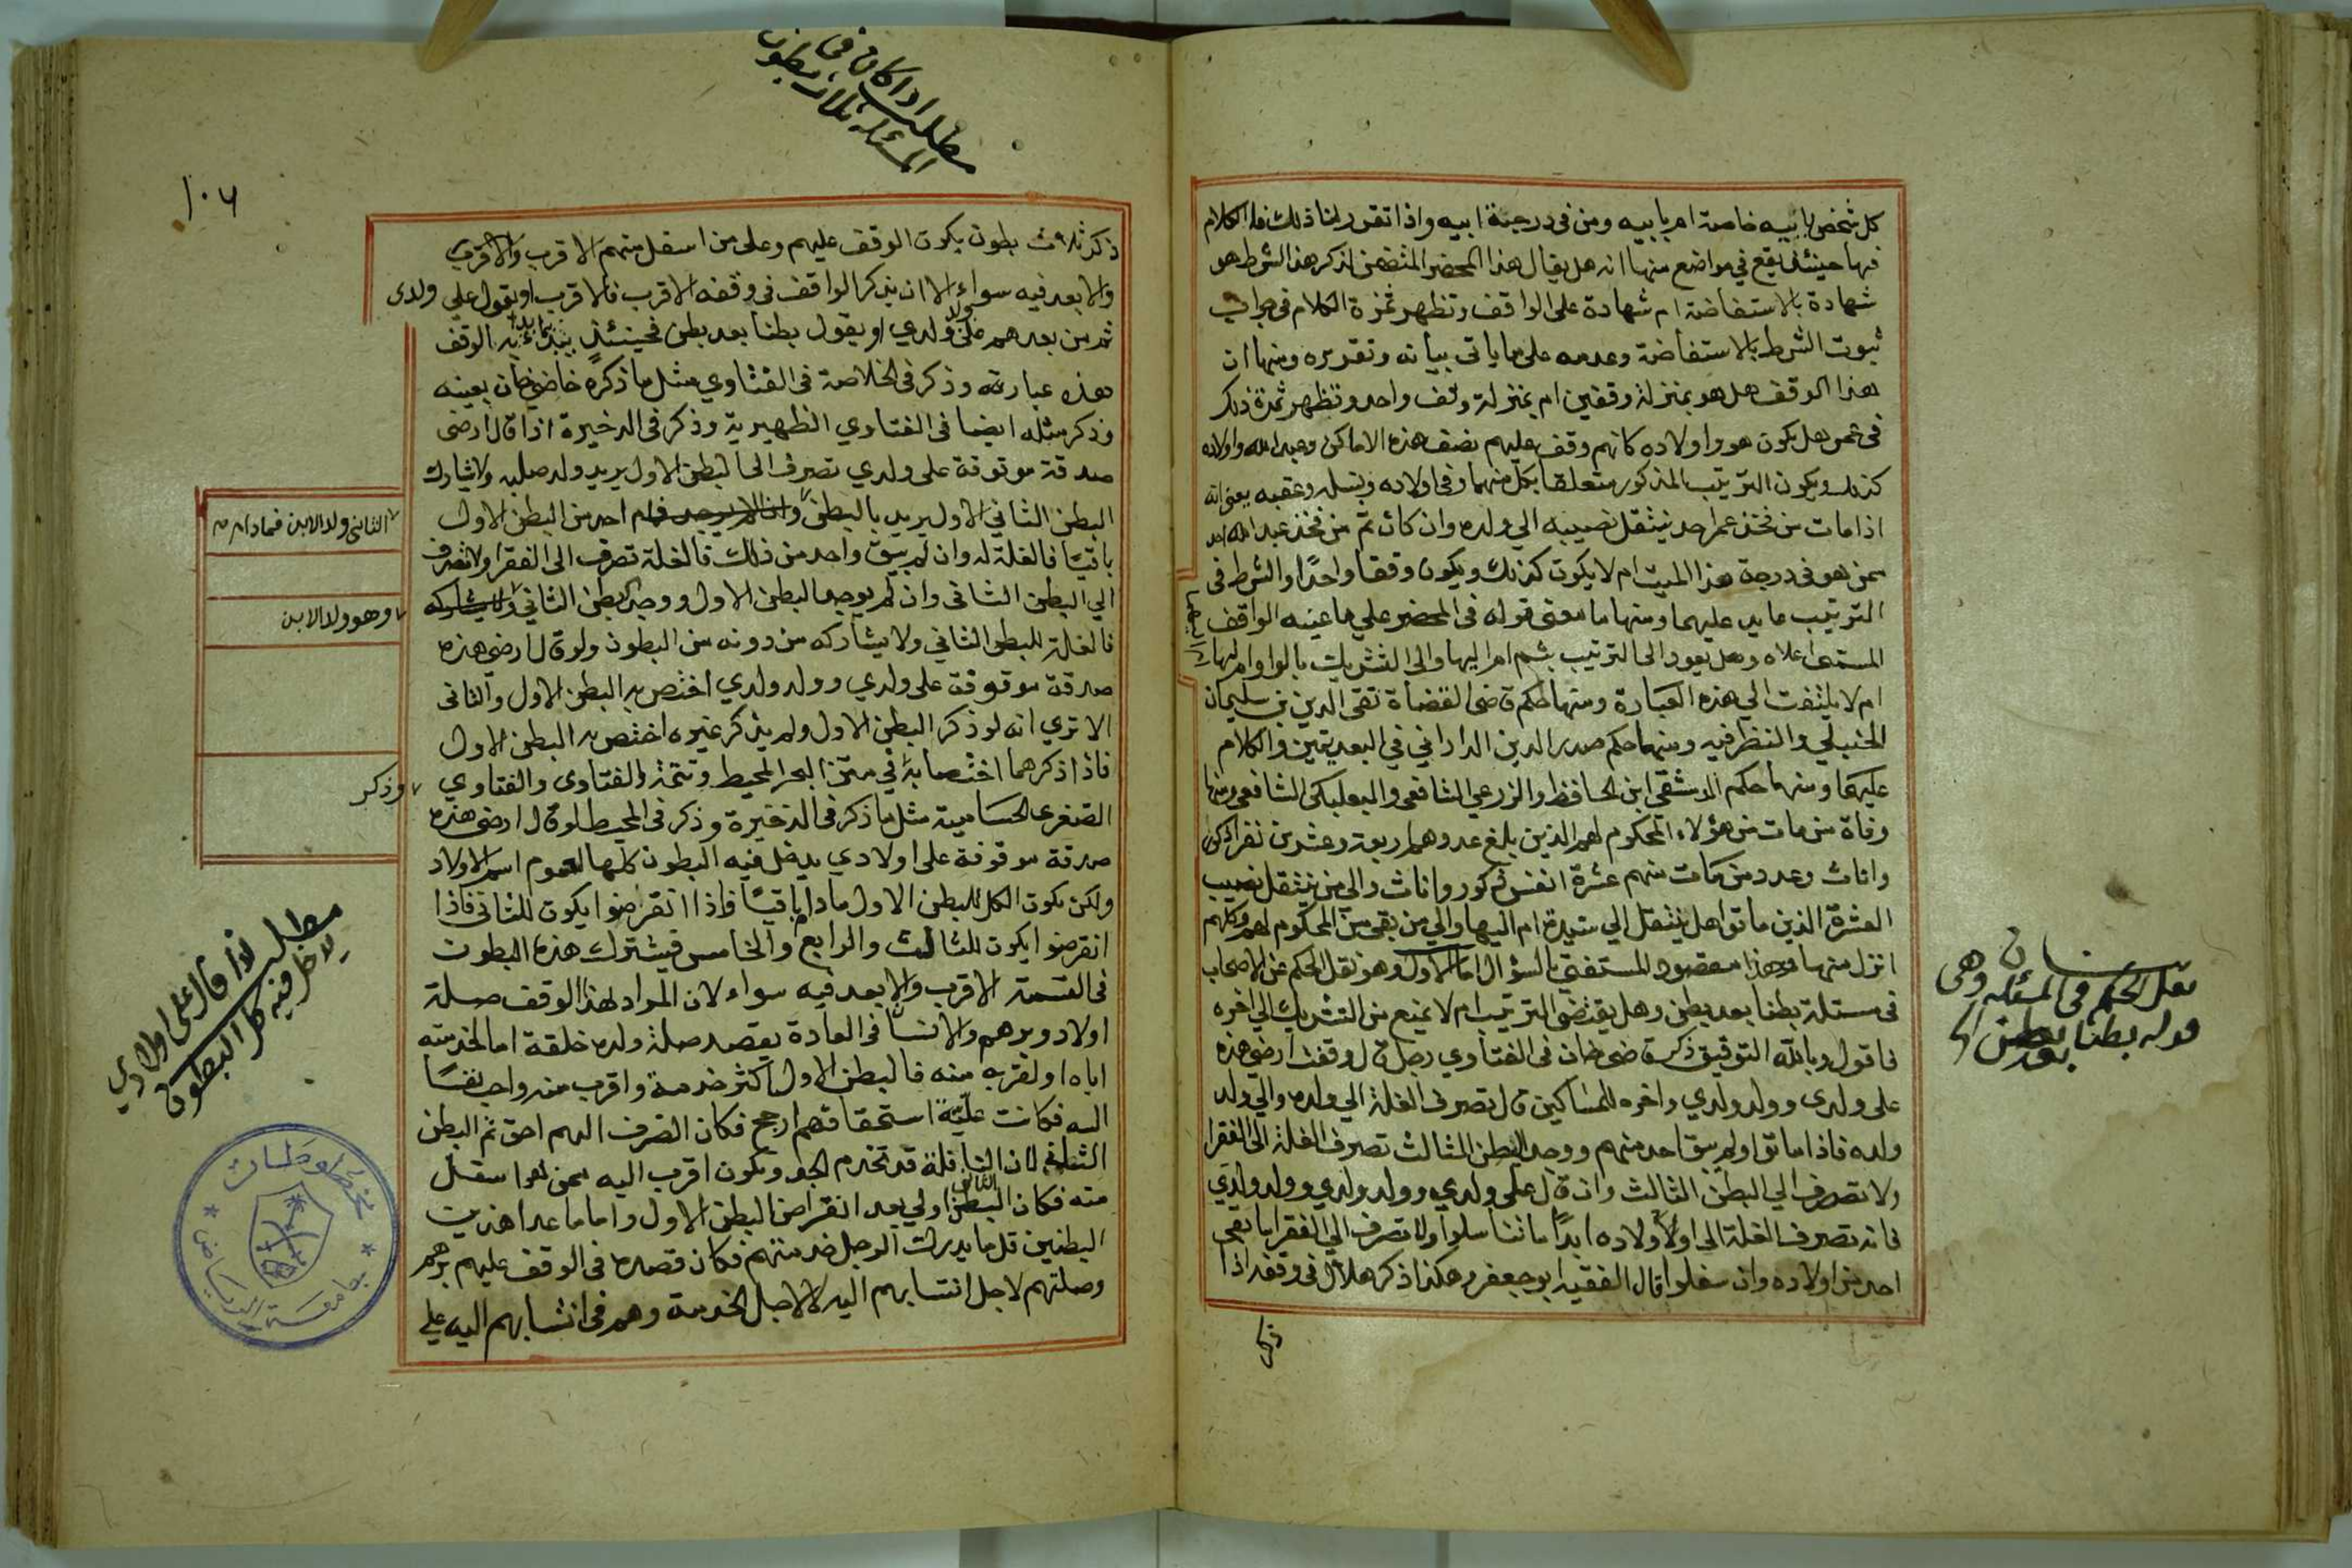 كل شخص بابيه خاصة ام بابيه ومن فى درجة ابيه واذا تقرر لنا ذلك فالكلام
فيها حينئذ يقع في مواضع منها انه هل يقال هذا المحضر المتضمن لذكر هذا الشرط هو
شهادة بالاستفاضة ام شهادة على الواقف وتظهر ثمرة الكلام فى جواب
ثبوت الشرط بالاستفاضة وعدمه على ما ياتى بيانه وتقديره ومنها ان
هذا الوقف هل هو بمنزلة وقفين ام بمنزلة وقف واحد وتظهر ثمرة ذلك
فى عمر هل يكون هو واولاده كانهم وقف عليهم نصف هذه الاماكن وعبد الله واولاده
كذلك ويكون الترتيب المذكور متعلقا بكل منهما وفى اولاده ونسله وعقبه يعنى انه
اذا مات من فخذ عمر احد ينتقل نصيبه الي ولده وان كان ثم من فخذ عبد الله احد
ممن هو فى درجة هذا الميت ام لا يكون كذلك ويكون وقفا واحدًا والشرط فى
الترتيب عايد عليهما ومنها ما معنى قوله فى المحضر علي ما عينه الواقف
المسمى اعلاه وهل يعود الى الترتيب بثم ام اليها والى التشريك بالواو ام
ام لا يلتفت الي هذه العبارة ومنها حكم قاضى القضاة تقى الدين بن سليمان
الحنبلي والنظر فيه ومنها حكم صدر الدين الدارانى في البعديتين والكلام
عليهما ومنها حكم الدمشقى ابن الحافظ والزرعي الشافعى والبعلبكى الشافعى ومنها
وفاة من مات من هؤلاء المحكوم لهم الذين بلغ عددهم اربعة وعشرين نفرا ذكور
واناث وعدد من مات منهم عشرة انفس ذكور واناث والى من ينتقل نصيب
العشرة الذين ماتوا هل ينتقل الي ستيتة ام اليها والي من بقى من المحكوم لهم وكلهم
انزل منها وهذا مقصود المستفتي بالسؤال اما الاول وهو نقل الحكم عن الاصحاب
فى مسئلة بطنا بعد بطن وهل يقتضى الترتيب ام لا يمنع من التشريك الي اخره
فاقول وبالله التوفيق ذكر قاضى خان فى الفتاوي رجل قال وقفت ارضي هذه
على ولدى وولد ولدي واخره للمساكين قال تصرف الغلة الي ولده والي ولد
ولده فاذا ماتوا ولم يبق احد منهم ووجد البطن الثالث تصرف الغلة الى الفقرا
ولا تصرف الي البطن الثالث وان قال على ولدي وولد ولدي وولد ولد ولدي
فانه تصرف الغلة الى اولاد اولاده ابدًا ما تناسلوا ولا تصرف الي الفقرا ما بقى
احد من اولاده وان سفلوا قال الفقيه ابو جعفر وهكذا ذكر هلال فى وقفه اذا
ذكر
نقل الحكم فى المسئلة وهى
قوله بطنا بعد بطن
مطلب اذا كان فى
المسئلة ثلاث بطون
١٠٦
ذكر ثلاث بطون يكون الوقف عليهم وعلى من اسفل منهم الاقرب والاقرب
والابعد فيه سواء الا ان يذكر الواقف فى وقفه الاقرب فالاقرب او يقول على ولدى
ثم من بعدهم على ولد ولدي او يقول بطنا بعد بطن فحينئذ يبدأ بما بدأ به الوقف
هذه عبارته وذكر فى الخلاصة فى الفتاوي مثل ما ذكره قاضي خان بعينه
وذكر مثله ايضا فى الفتاوي الظهيرية وذكر فى الذخيرة اذا قال ارضى
صدقة موقوفة على ولدي تصرف الى البطن الاول يريد ولد صلبه ولا يشارك
البطن الثاني الاول يريد بالبطن احد من البطن الاول
باقيًا فالغلة له وان لم يبق واحد من ذلك فالغلة تصرف الى الفقرا ولا تصرف
الي البطن الثانى وان لم يوجد البطن الاول ووجد البطن الثاني
فالغلة للبطن الثاني ولا يشاركه من دونه من البطون ولو قال ارضى هذه
صدقة موقوفة على ولدي وولد ولدي اختص به البطن الاول والثانى
الا تري انه لو ذكر البطن الاول ولم يذكر غيره اختص به البطن الاول
فاذا ذكرهما اختصا به فى منتخب البحر المحيط وتتمة الفتاوى والفتاوي
الصغرى الحسامية مثل ما ذكر فى الذخيرة وذكر فى المحيط لو قال ارضى هذه
صدقة موقوفة على اولادي يدخل فيه البطون كلها لعموم اسم الاولاد
ولكن يكون الكل للبطن الاول ما دام باقيًا فاذا انقرضوا يكون للثانى فاذا
انقرضوا يكون للثالث والرابع والخامس فيشترك هذه البطون
فى القسمة الاقرب والابعد فيه سواء لان المراد لهذا الوقف صلة
اولاد وبرهم والانسان فى العادة يقصد صلة ولده خلقة اما لخدمته
اباه او لقربه منه فالبطن الاول اكثر خدمة واقرب منه واحب نفسًا
اليه فكانت علية استحقاقهم ارجح فكان الصرف اليهم احق ثم البطن
الثانى لان النافلة قد تخدم الجد ويكون اقرب اليه ممن هو اسفل
منه فكان البطن الثانى اولي بعد انقراض البطن الاول واما ما عدا هذين
البطنين قل ما يدرك الرجل خدمتهم فكان قصده فى الوقف عليهم برهم
وصلتهم لاجل انتسابهم اليه لا لاجل الخدمة وهم فى انتسابهم اليه على
الثانى ولد الابن فما دام
وهو ولد الابن
وذكر
مطلب لو قال على اولادي
يدخل فيه كل البطون
مخطوطات
جامعة الرياض